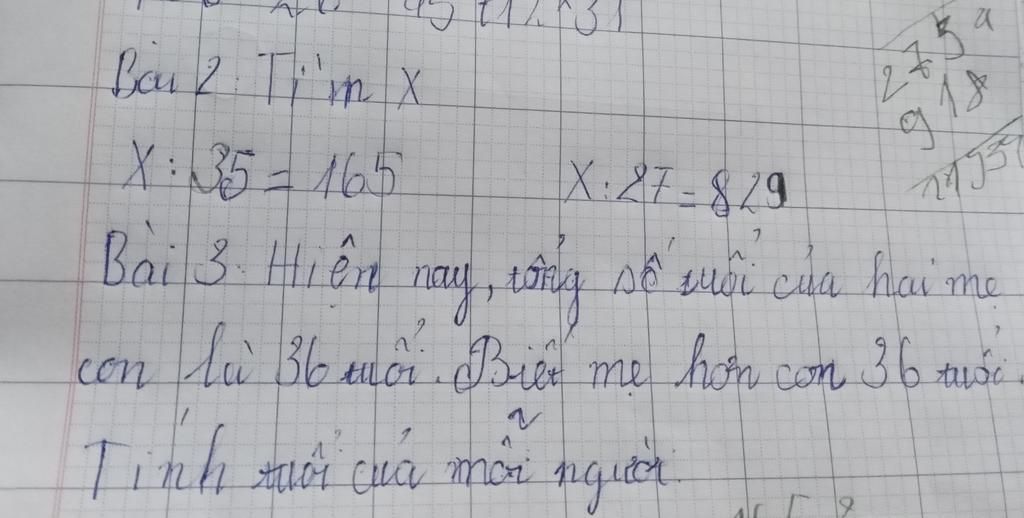 Bài 2: Tìm X
X : 35 = 165
X : 27 = 829
Bài 3. Hiện nay, tổng số tuổi của hai mẹ
con là 36 tuổi. Biết mẹ hơn con 36 tuổi.
Tính tuổi của mỗi người.